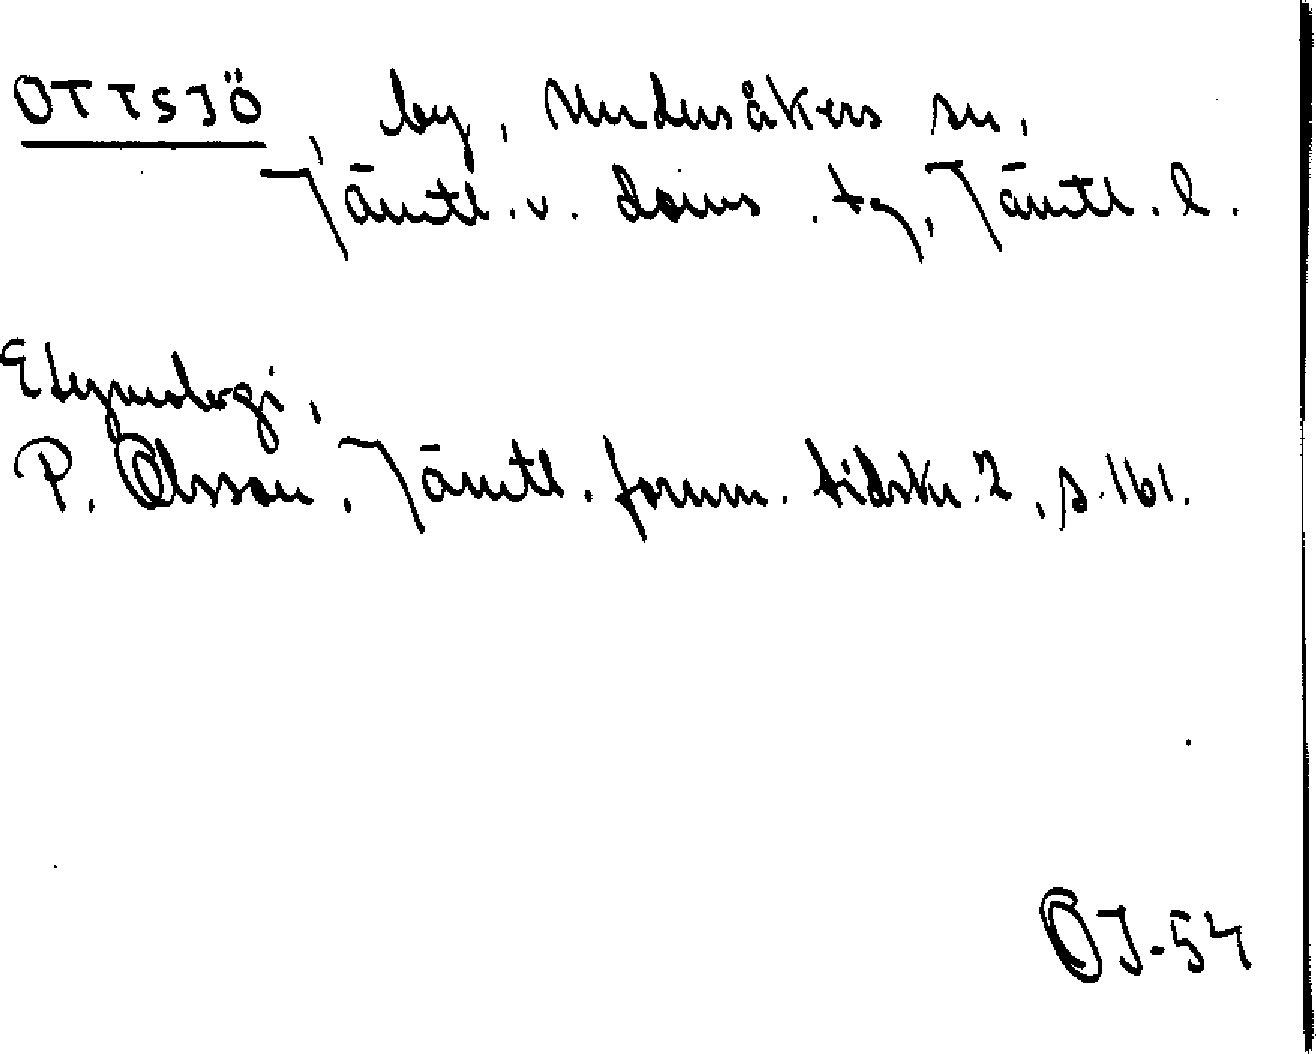 OTTSJÖ, by, Undersåkers sn,
Jämtl. v. doms. tg, Jämtl. l.
Etymologi,
P. Olsson, Jämtl. fornm. tidskr. 2, s. 161.
OJ-54